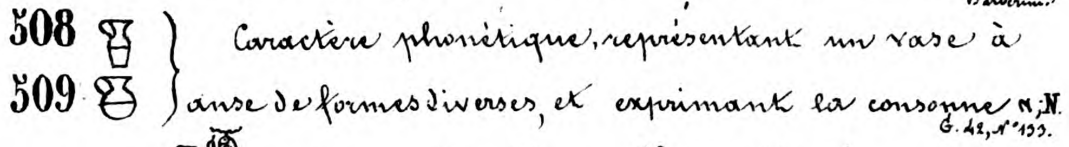 508 Caractère phonétique, représentant un vase à
509 anse de formes diverses, et exprimant la consonne n; N.
G. 42, N° 133.